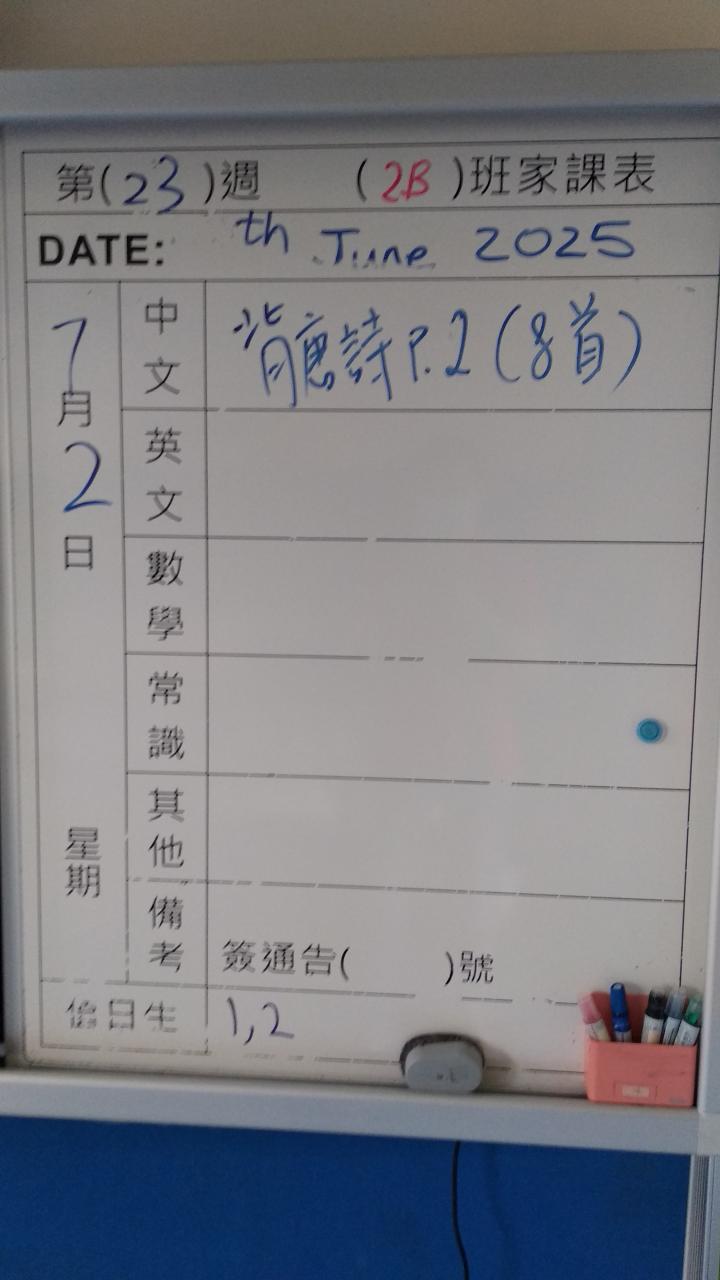 第(23)週 (2B)班家課表
DATE: th June 2025
7月2日 星期
中文 背唐詩 P.2 (8首)
英文
數學
常識
其他
備考 簽通告( )號
值日生 1,2